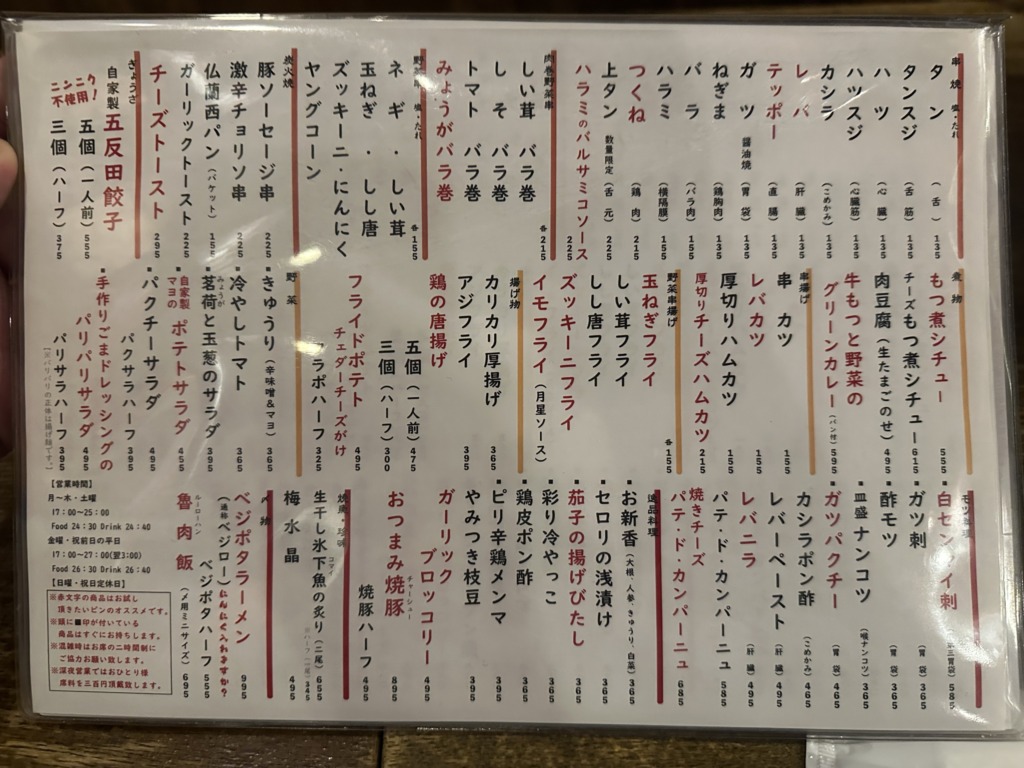 串焼 塩・たれ
タン （舌） 135
タンスジ （舌筋） 135
ハツ （心臓） 135
ハツスジ （心臓筋） 155
カシラ （こめかみ） 135
レバ （肝臓） 135
テッポー （直腸） 135
ガツ 醤油焼 （胃袋） 155
ねぎま （鶏胸肉） 155
バラ （バラ肉） 155
ハラミ （横隔膜） 155
つくね （鶏肉） 215
上タン 数量限定 （舌元） 225
ハラミのバルサミコソース 225
肉巻野菜串
しい茸 バラ巻
しそ バラ巻
トマト バラ巻
みょうがバラ巻
各215
野菜串 塩・たれ
ネギ・しい茸
玉ねぎ・しし唐
ズッキーニ・にんにく
ヤングコーン
各155
炭火焼
豚ソーセージ串 225
激辛チョリソ串 225
仏蘭西パン（バケット） 155
ガーリックトースト 225
チーズトースト 295
ぎょうざ
自家製 五反田餃子
五個（一人前） 555
三個（ハーフ） 375
ニンニク不使用！
煮物
もつ煮シチュー 555
チーズもつ煮シチュー 615
肉豆腐（生たまごのせ） 495
牛もつと野菜の
グリーンカレー（パン付） 595
串揚げ
串カツ 155
レバカツ 155
厚切りハムカツ 155
厚切りチーズハムカツ 215
野菜串揚げ
玉ねぎフライ
しい茸フライ
しし唐フライ
ズッキーニフライ
イモフライ（月星ソース）
各155
揚げ物
カリカリ厚揚げ 365
アジフライ 395
鶏の唐揚げ
五個（一人前） 475
三個（ハーフ） 300
フライドポテト
チェダーチーズがけ 495
フラポハーフ 325
野菜
■きゅうり（辛味噌&マヨ） 365
■冷やしトマト 365
■茗荷と玉葱のサラダ 395
みょうが
■自家製マヨの ポテトサラダ 455
■パクチーサラダ 495
パクサラハーフ 395
■手作りごまドレッシングの
パリパリサラダ 495
パリサラハーフ 395
（※パリパリの正体は揚げ麺です。）
モツ料理
■白センマイ刺 （第三胃袋） 585
■ガツ刺 （胃袋） 365
■酢モツ 365
■皿盛ナンコツ （喉ナンコツ） 365
■ガツパクチー （胃袋） 365
カシラポン酢 （こめかみ） 465
レバーペースト （肝臓） 495
レバニラ （肝臓） 495
パテ・ド・カンパーニュ 585
焼きチーズ
パテ・ド・カンパーニュ 685
逸品料理
■お新香（大根、人参、きゅうり、白菜） 365
■セロリの浅漬け 365
■茄子の揚げびたし 365
■彩り冷やっこ 365
■鶏皮ポン酢 365
■ピリ辛鶏メンマ 365
やみつき枝豆 395
ガーリック
ブロッコリー 495
おつまみ焼豚 895
チャーシュー
焼豚ハーフ 495
生干し氷下魚の炙り（二尾） 655
コマイ
※ハーフ（一尾） 345
梅水晶 495
〆物
ベジポタラーメン 995
（通称ベジロー）にんにく入れますか？
ベジポタハーフ 555
魯肉飯 （〆用ミニサイズ） 695
ルーローハン
【営業時間】
月～木・土曜
17：00～25：00
Food 24：30 Drink 24：40
金曜・祝前日の平日
17：00～27：00(翌3:00)
Food 26：30 Drink 26：40
【日曜・祝日定休日】
※赤文字の商品はお試し
頂きたいピンのオススメです。
※頭に■印が付いている
商品はすぐにお持ちします。
※混雑時はお席の二時間制に
ご協力お願い致します。
※深夜営業ではおひとり様
席料を三百円頂戴致します。